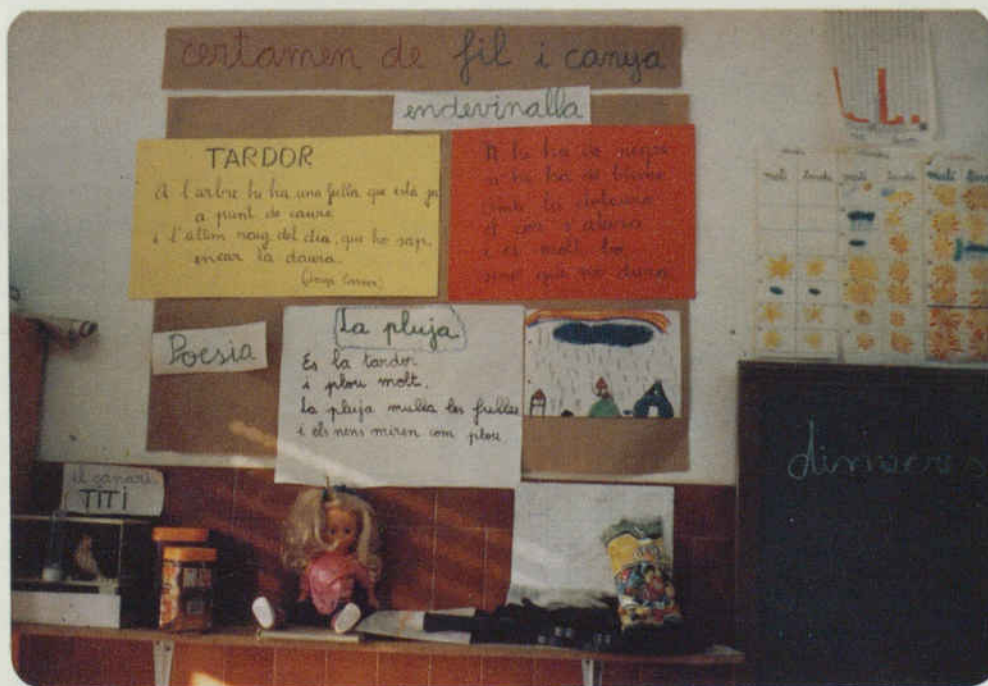 certamen de fil i canya
endevinalla
TARDOR
A l'arbre hi ha una fulla que està ja
a punt de caure
i l'últim raig del dia, que ho sap,
encar la daura.
A la
i es molt bo
sinó que no dura
Poesia
La pluja
Es la tardor
i plou molt.
La pluja mulla les fulles
i els nens miren com plou.
el canari
TITI
matí tarda matí tarda matí tarda
dimecres